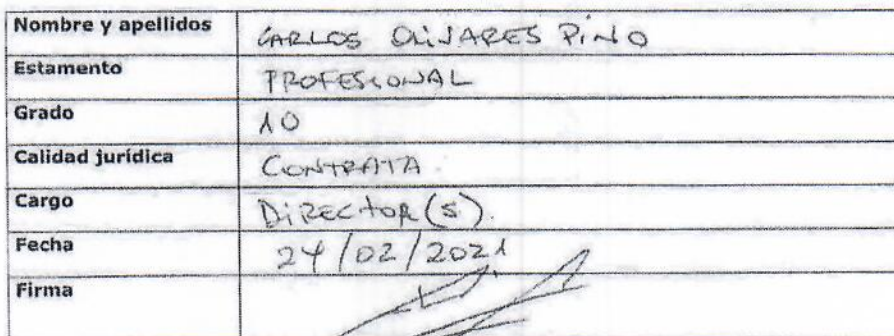 Nombre y apellidos CARLOS OLIVARES PINO
Estamento PROFESIONAL
Grado 10
Calidad jurídica CONTRATA.
Cargo DIRECTOR(S).
Fecha 24/02/2021
Firma